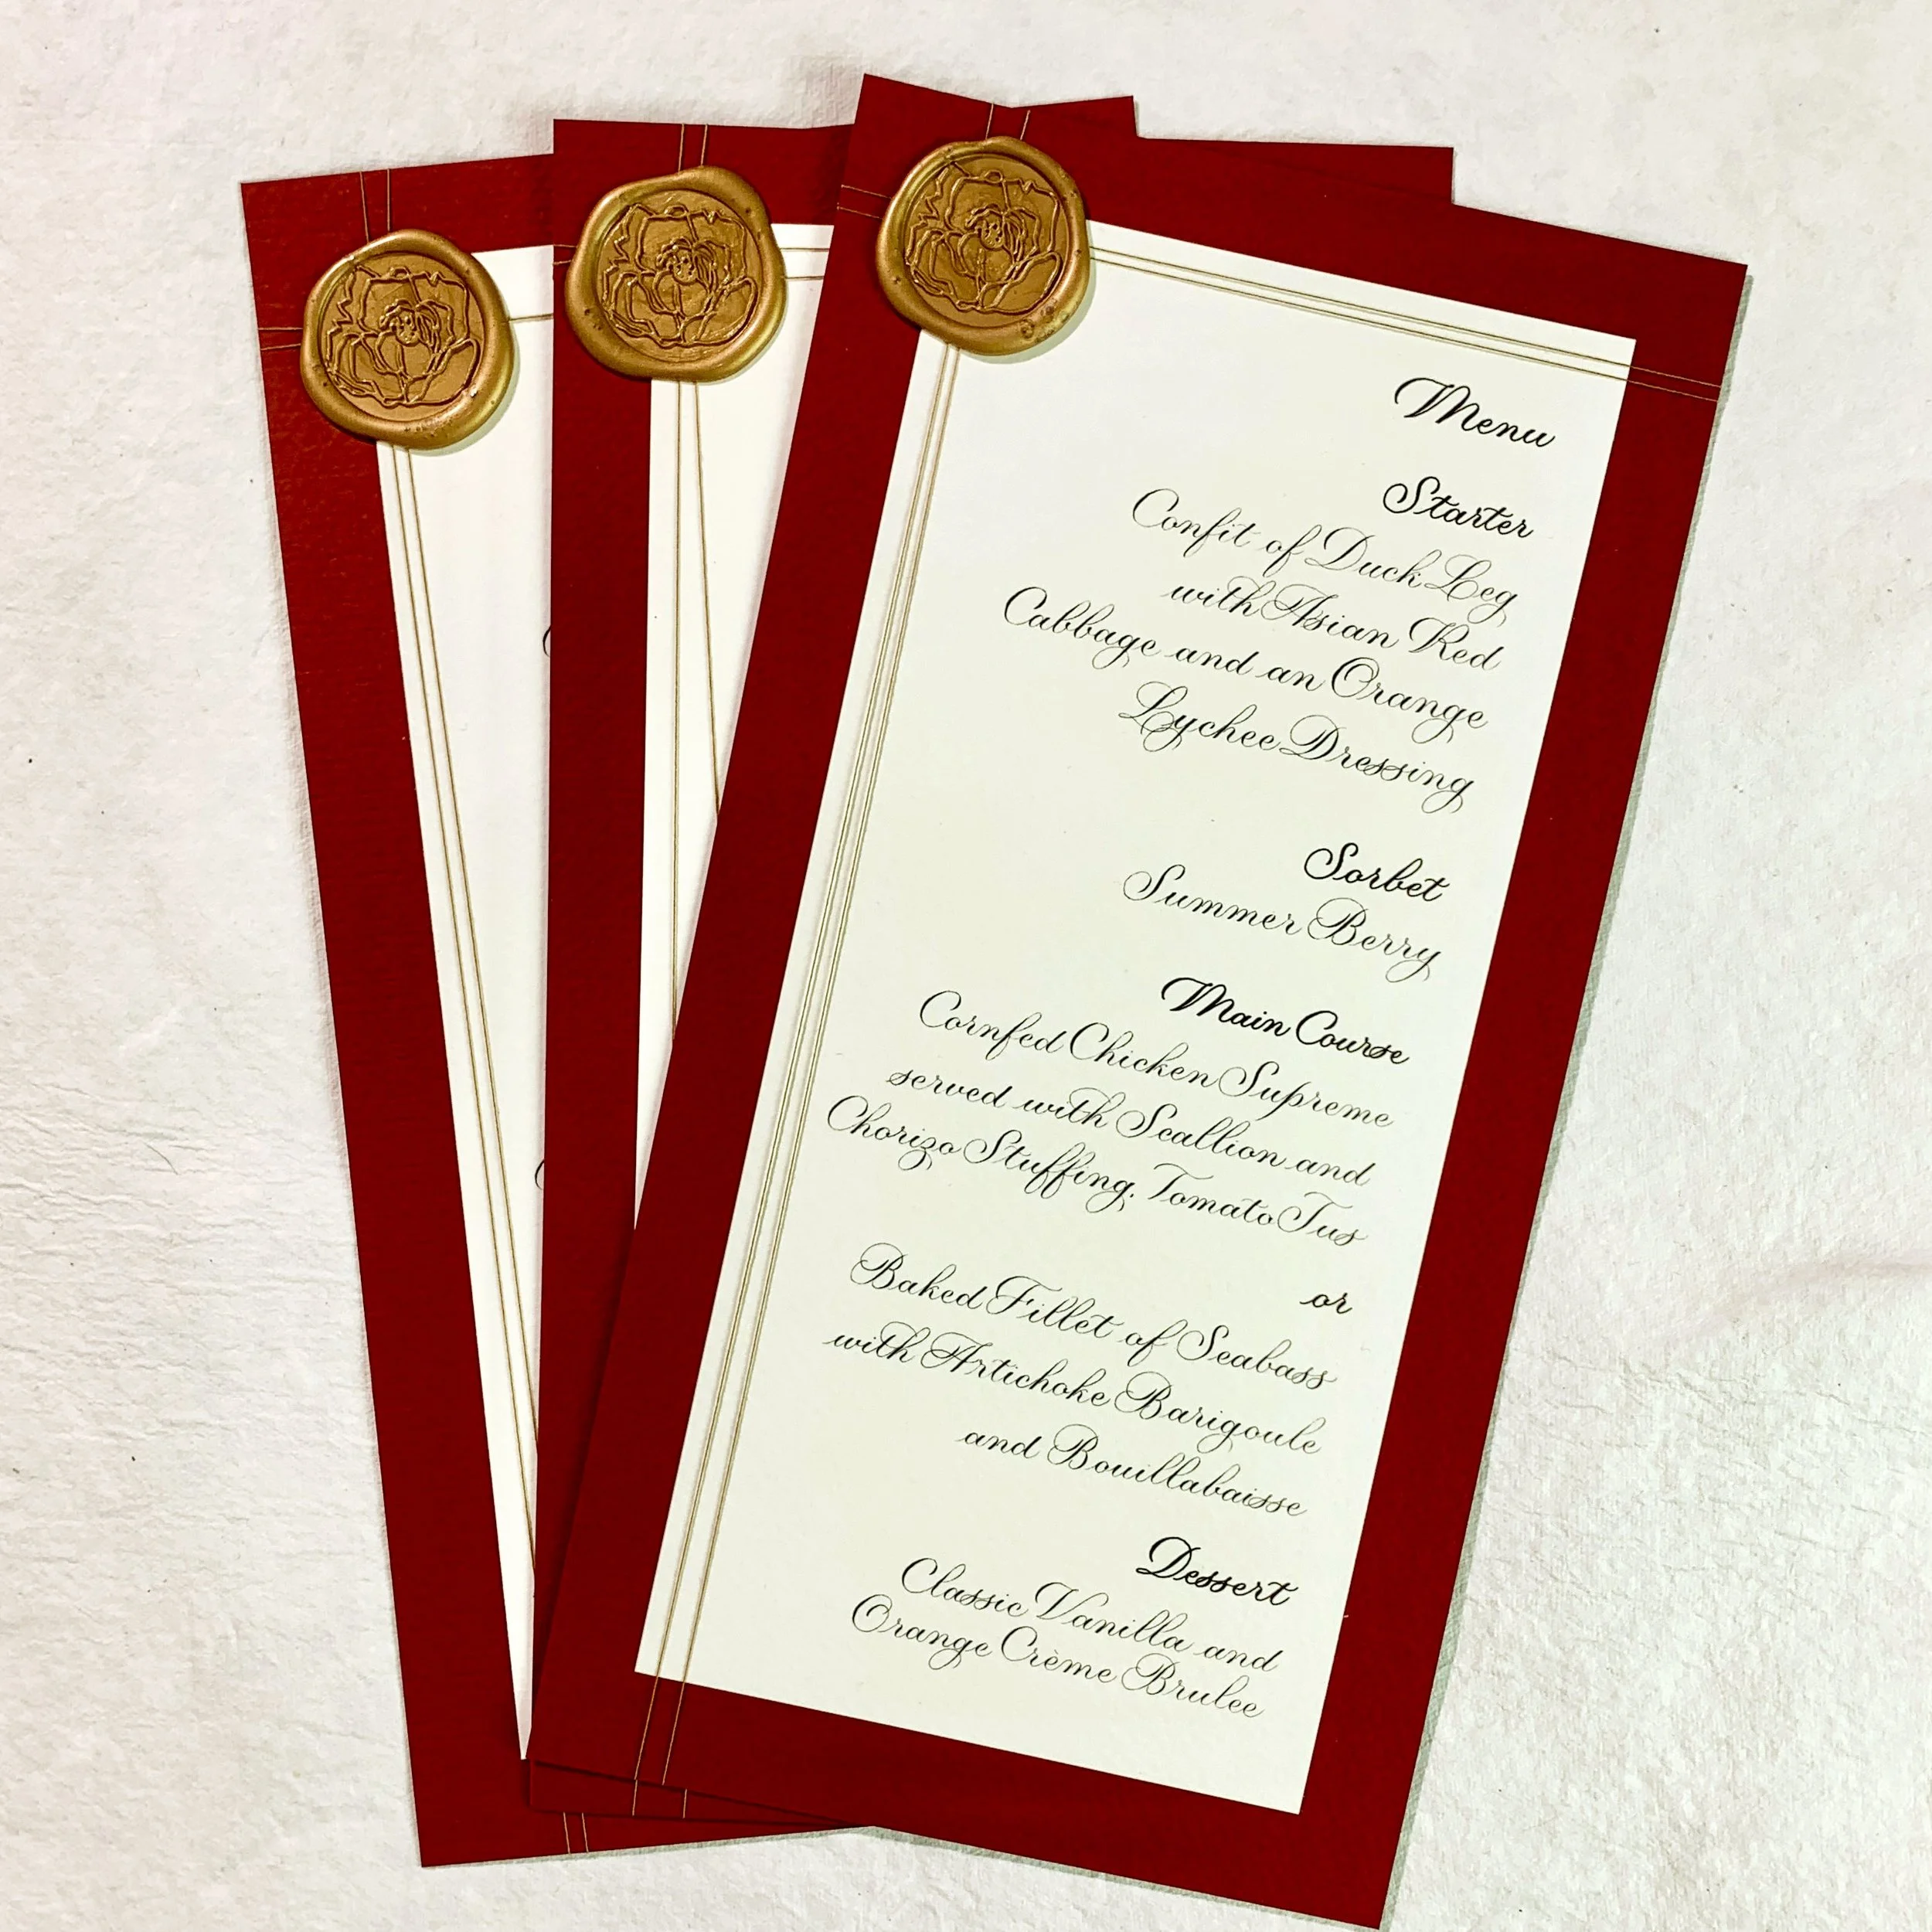 Menu
Starter
Confit of Duck Leg
with Asian Red
Cabbage and an Orange
Lychee Dressing
Sorbet
Summer Berry
Main Course
Cornfed Chicken Supreme
served with Scallion and
Chorizo Stuffing, Tomato Jus
or
Baked Fillet of Seabass
with Artichoke Barigoule
and Bouillabaisse
Dessert
Classic Vanilla and
Orange Crème Brulee